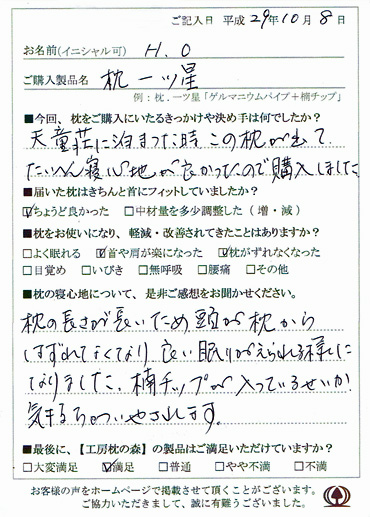 ご記入日 平成29年10月8日
お名前(イニシャル可) H.O
ご購入製品名 枕 一ツ星
例：枕.一ツ星「ゲルマニウムパイプ＋楠チップ」
■今回、枕をご購入にいたるきっかけや決め手は何でしたか？
天童荘に泊まった時 この枕が出て
たいへん寝心地が良かったので購入しました
■届いた枕はきちんと首にフィットしていましたか？
☑ちょうど良かった □中材量を多少調整した（ 増・減 ）
■枕をお使いになり、軽減・改善されてきたことはありますか？
□よく眠れる ☑首や肩が楽になった ☑枕がずれなくなった
□目覚め □いびき □無呼吸 □腰痛 □その他
■枕の寝心地について、是非ご感想をお聞かせください。
枕の長さが長いため 頭が枕から
はずれなくなり 良い眠りがえられる様に
なりました、楠チップが入っているせいか
気持ちがいやされます。
■最後に、【工房枕の森】の製品はご満足いただけていますか？
□大変満足 ☑満足 □普通 □やや不満 □不満
お客様の声をホームページで掲載させて頂くことがございます。
ご協力いただきまして、誠に有難うございました。